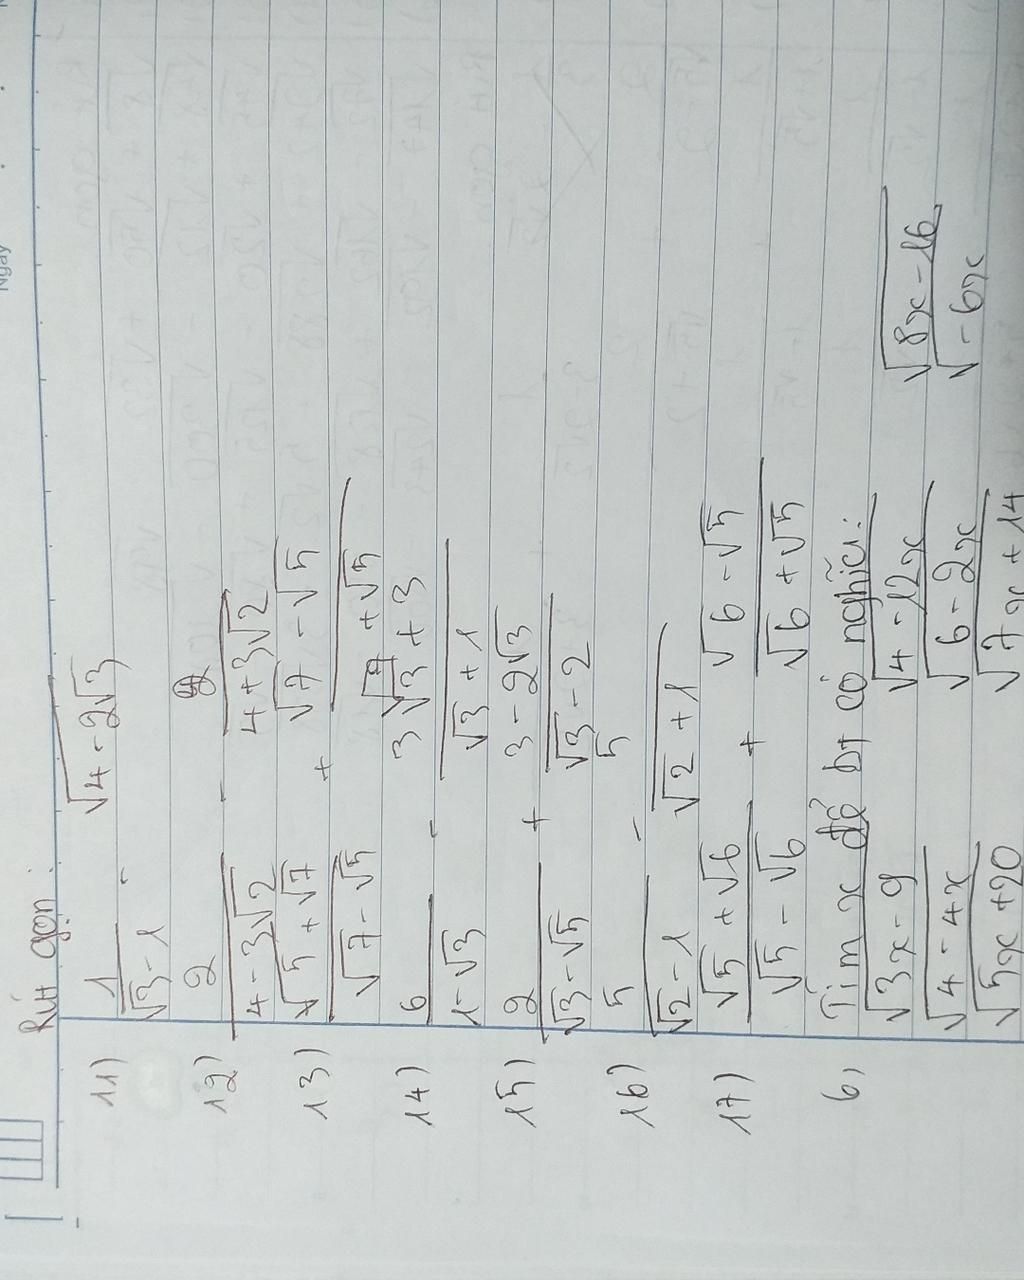 Ngày
Rút gọn:
11) 1/(√3 - 1) - √(4 - 2√3)
12) 2/(4 - 3√2) - 2/(4 + 3√2)
13) (√5 + √7)/(√7 - √5) + (√7 - √5)/(√7 + √5)
14) 6/(1 - √3) - (3√3 + 3)/(√3 + 1)
15) 2/(√3 - √5) + (3 - 2√3)/(√3 - 2)
16) 5/(√2 - 1) - 5/(√2 + 1)
17) (√5 + √6)/(√5 - √6) + (√6 - √5)/(√6 + √5)
6) Tìm x để bt có nghĩa:
√(3x - 9) √(4 - 12x) √(8x - 16)
√(4 - 4x) √(6 - 2x) √(-6x)
√(5x + 20) √(7x + 14)